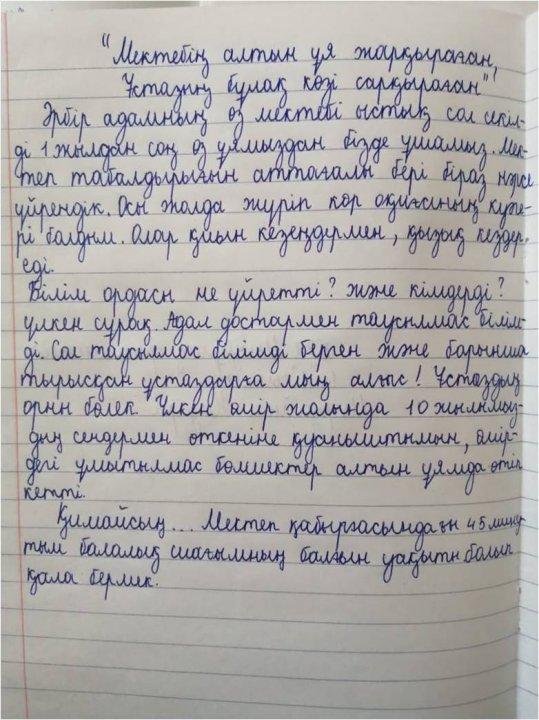 "Мектебің алтын ұя жарқыраған,
Ұстазың бұлақ көзі сарқыраған"
Әрбір адамның өз мектебі ыстық сол секіл-
ді 1 жылдан соң өз ұямыздан бізде ұшамыз. Мек-
теп табалдырығын аттағалы бері біраз нәрсе
үйрендік. Осы жолда жүріп көр оқиғасының куәге-
рі болдым. Олар қиын кезеңдермен, қызық кездер
еді.
Білім ордасы не үйретті? және кімдерді?
үлкен сұрақ. Адал достармен таусылмас білім-
ді. Сол таусылмас білімді берген және барынша
тырысқан ұстаздарға мың алғыс! Ұстаздың
орны бөлек. Үлкен өмір жолында 10 жылымыз-
дың сендермен өткеніне қуаныштымын, өмір-
дегі ұмытылмас бөлшектер алтын ұямда өтіп
кетті.
Қимайсың... Мектеп қабырғасындағы 45 мину-
тым балалық шағымның балғын уақыты болып
қала бермек.